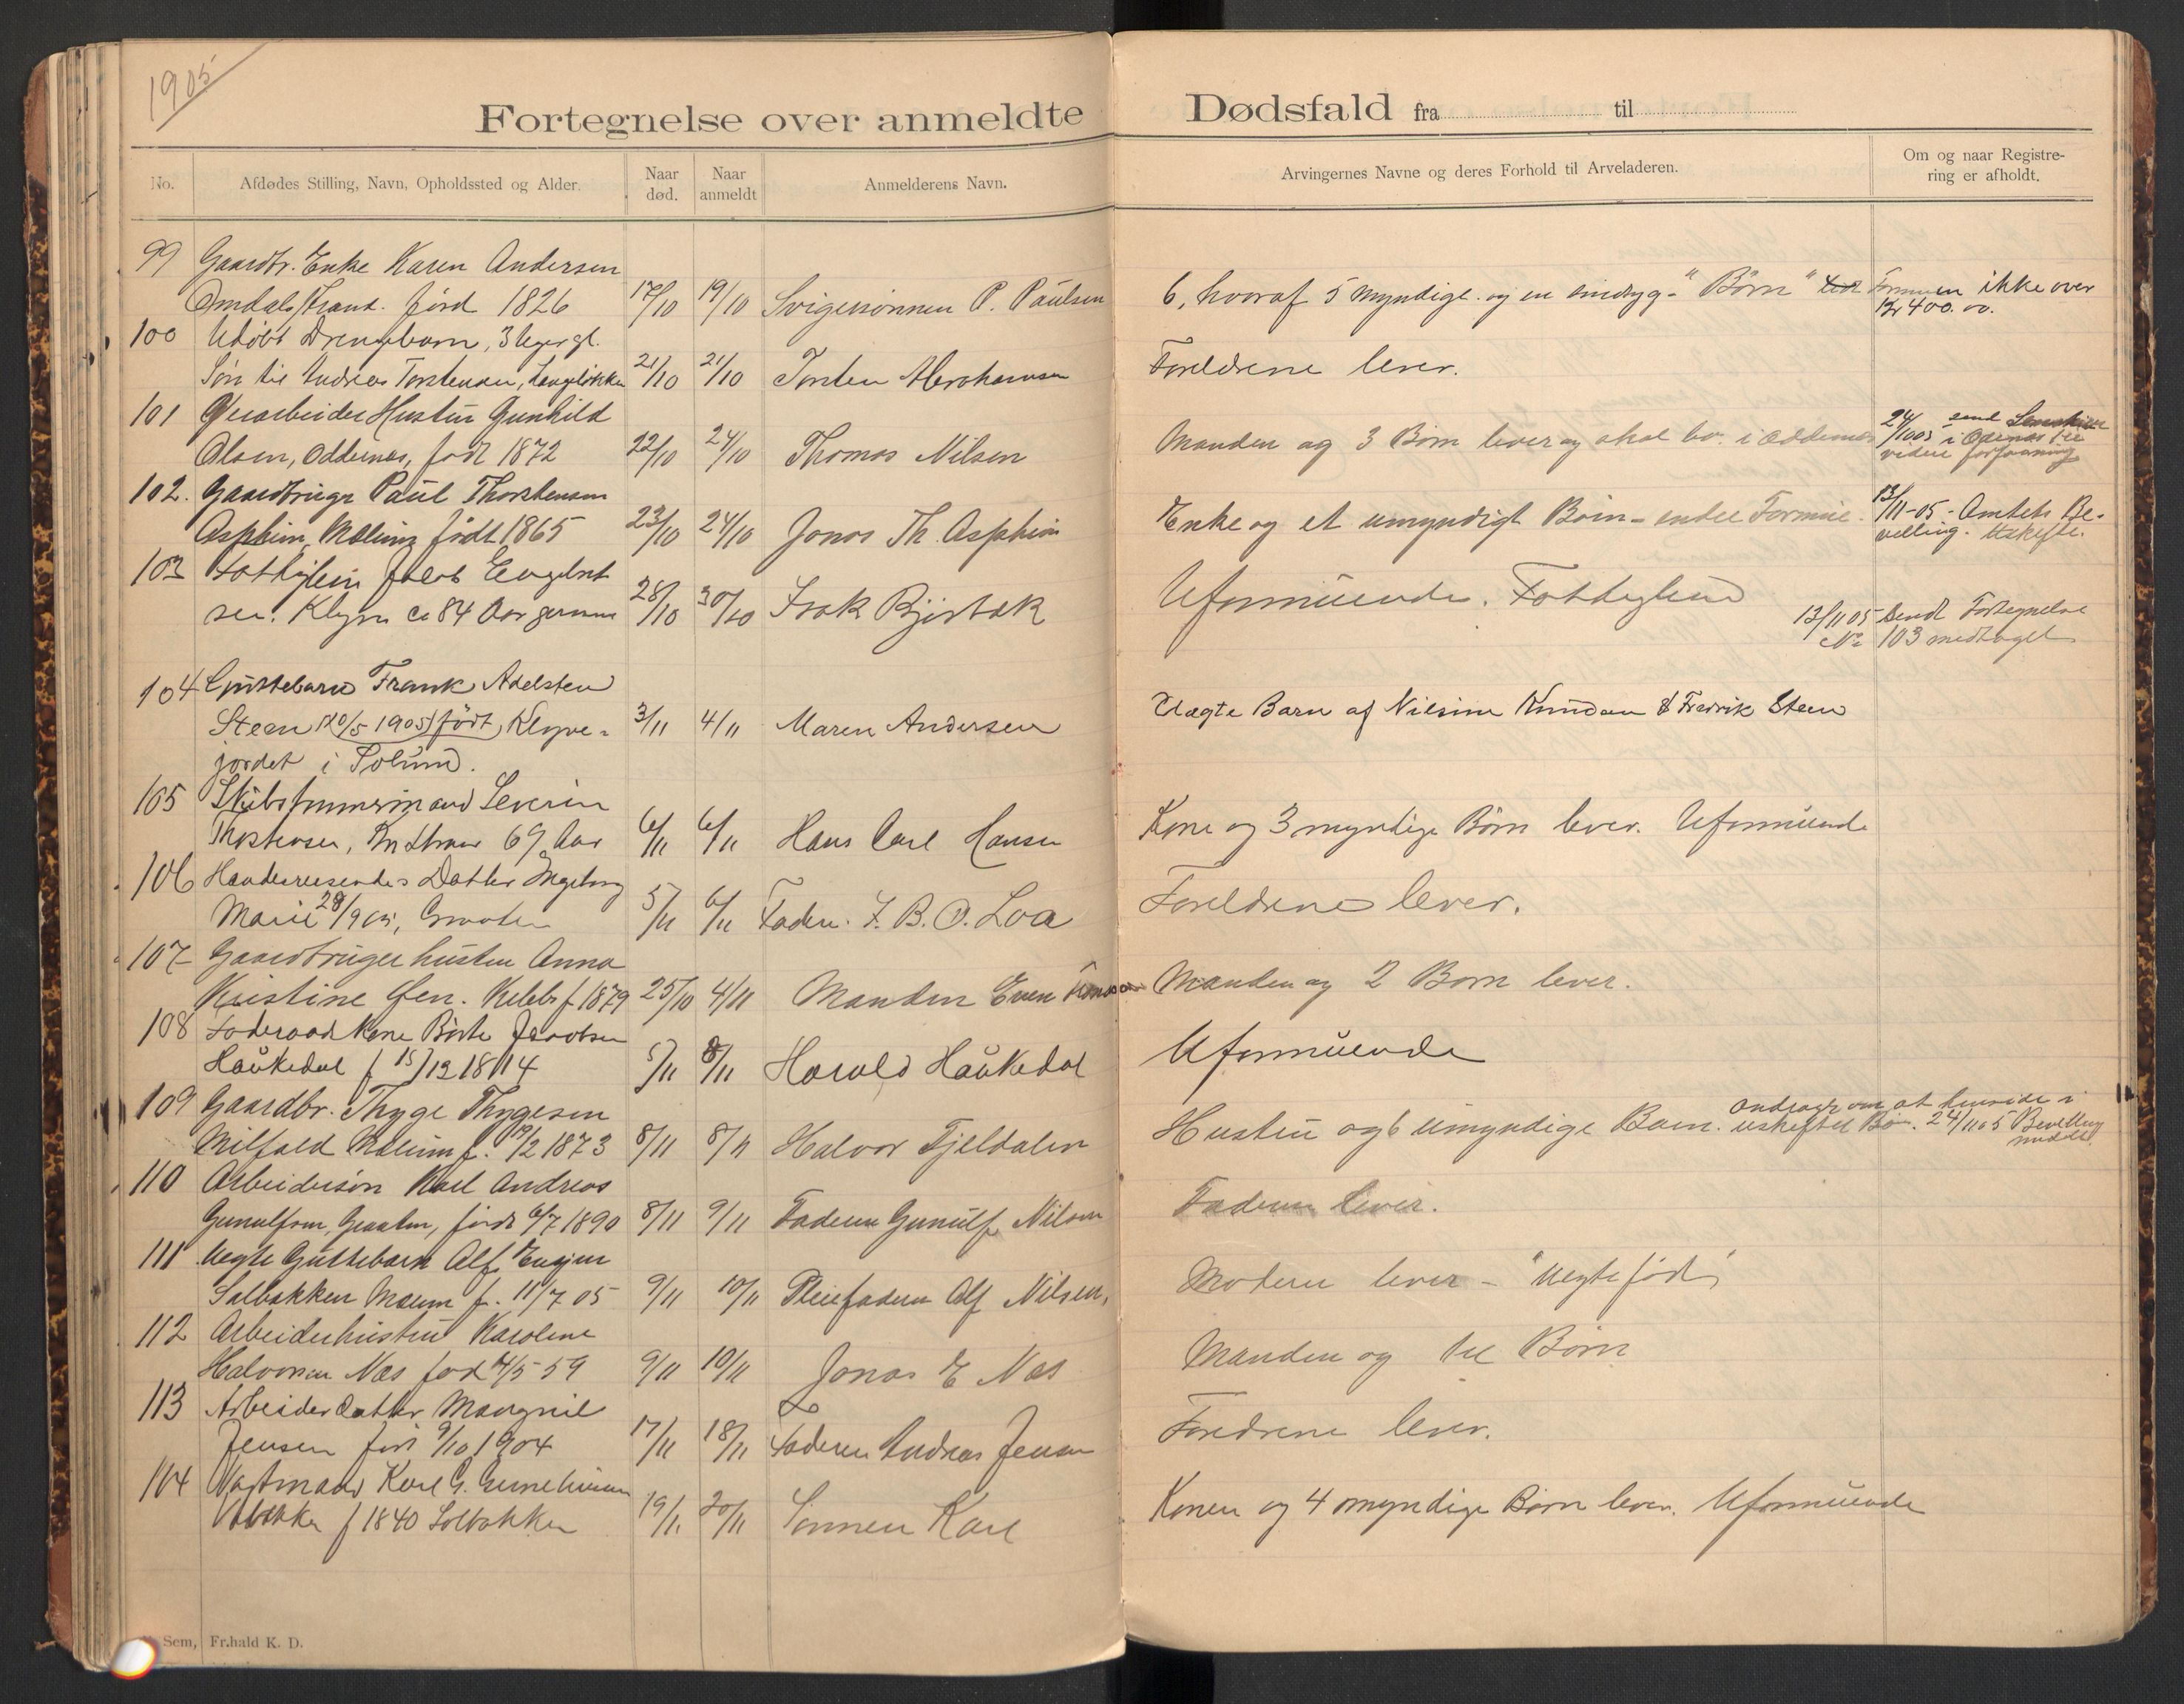 1905
Fortegnelse over anmeldte Dødsfald fra til
No. Afdødes Stilling, Navn, Opholdssted og Alder. Naar død. Naar anmeldt Anmelderens Navn. Arvingernes Navne og deres Forhold til Arveladeren. Om og naar Registrering er afholdt.
99 Gaardbr. Enke Karen Andersen
Omdalsstrand. født 1826 17/10 19/10 Svigersønnen P. Paulsen 6, hvoraf 5 myndige og en "Børn" Formuen ikke over
Kr 400.00.
100 Udøbt Drengebarn, 3 Uger gl.
Søn til Andreas Torstensen, 21/10 21/10 Torsten Abrahamsen Foreldrene lever.
101 Hustru Gunhild
Olsen, Oddernes, født 1872 22/10 24/10 Thomas Nilsen Manden og 3 Børn lever og skal bo i Oddernes 24/10 05 send
i
videre
102. Gaardbruger Paul Thorstensen
Asphim, Mælum født 1865 23/10 24/10 Jonas Th. Asphim Enke og et umyndigt Børn - endel Formue. 13/11-05 - Amtets Be-
villing. Uskifte.
103 Fattiglem Jacob Engelret
sen. Klyve ca 84 Aar gammel 28/10 30/10 Isak Bjerbæk Uformuende. Fattiglem
13/11 05 Sendt Fortegnelse
No 103 medtaget
104 Guttebarn Frank Adelsten
Steen 20/5 1905 født, Klyve- 3/11 4/11 Maren Andersen Uægte Barn af Nilsine Knudsen & Fredrik Steen
jordet i Solum.
105 Skibstømmermand Severin
Thostensen, 69 Aar 6/11 6/11 Hans Carl Hansen Kone og 3 myndige Børn lever. Uformuende
106 Handelsreisendes Datter Ingeborg
Marie 28/9 05, Graaten 5/11 6/11 Faderen F. B. O. Loa Foreldrene lever.
107 Gaardbruger hustru Anna
Kristine f 1879 25/10 4/11 Manden Even Manden og 2 Born lever.
108 Foderaadskone Birte Jacobsen
Haukedal f 15/12 1814 5/11 8/11 Harald Haukedal Uformuende
109 Gaardbr. Thyge Thygesen
Milfald Mælum f. 19/2 1873 8/11 8/11 Halvor Fjeldalen Hustru og 6 umyndige Barn. andrager om at henside i
uskiftet Bo. 24/11 05 Bevilling
meddelt
110 Arbeidersøn Karl Andreas
Gunulfsen, Graaten, født 6/7 1890 8/11 9/11 Faderen Gunulf Nilsen Faderen lever.
111 Uegte Guttebarn Alf
Solbakken Mælum f. 11/7 05 9/11 10/11 Pleiefaderen Alf Nilsen. Moderen lever - "Uegte født"
112 Arbeiderhustru Karoline
Halvorsen Næs født 4/5-59 9/11 10/11 Jonas E Næs Manden og Børn
113 Arbeider datter Mangnil
Jensen født 9/10 1904 17/11 18/11 Faderen Andreas Jensen Foredrene lever.
104 Vagtmand Karl G.
f 1840 Solbakken 19/11 20/11 Sønnen Karl Konen og 4 myndige Børn lever. Uformuende
Sem, Fr.hald K. D.